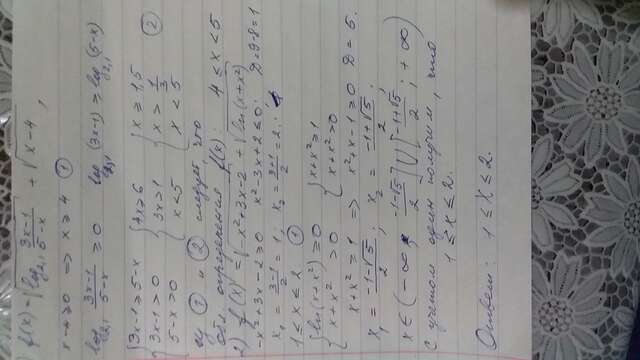 1) f(x) = √(log₂,₁ (3x-1)/(5-x)) + √(x-4),
x-4≥0 ⇒ x≥4 ①
log₂,₁ (3x-1)/(5-x) ≥ 0 log₂,₁ (3x-1) ≥ log₂,₁ (5-x)
{3x-1≥5-x {4x≥6 {x≥1,5
{3x-1>0 {3x>1 {x>1/3 ②
{5-x>0 {x<5 {x<5
из ① и ② следует, что
обл. определения f(x): 4≤x<5
2) f(x) = √(-x²+3x-2) + √(ln(x+x²))
-x²+3x-2≥0 x²-3x+2≤0; D=9-8=1
x₁ = (3-1)/2 = 1; x₂ = (3+1)/2 = 2;
1≤x≤2 ①
{ln(x+x²)≥0 {x+x²≥1
{x+x²>0 {x+x²>0
x+x²≥1 ⇒ x²+x-1≥0 D=5.
x₁ = (-1-√5)/2; x₂ = (-1+√5)/2;
x∈(-∞; (-1-√5)/2] ∪ [(-1+√5)/2; +∞)
С учетом один получим, что
1≤x≤2.
Ответ: 1≤x≤2.